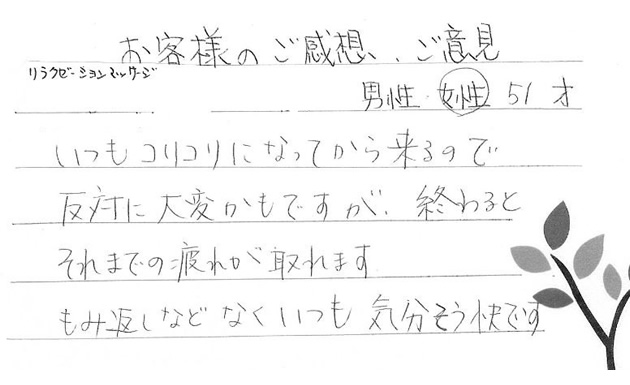 お客様のご感想、ご意見
リラクゼーションマッサージ
男性・女性 51才
いつもコリコリになってから来るので
反対に大変かもですが、終わると
それまでの疲れが取れます
もみ返しなどなくいつも気分そう快です